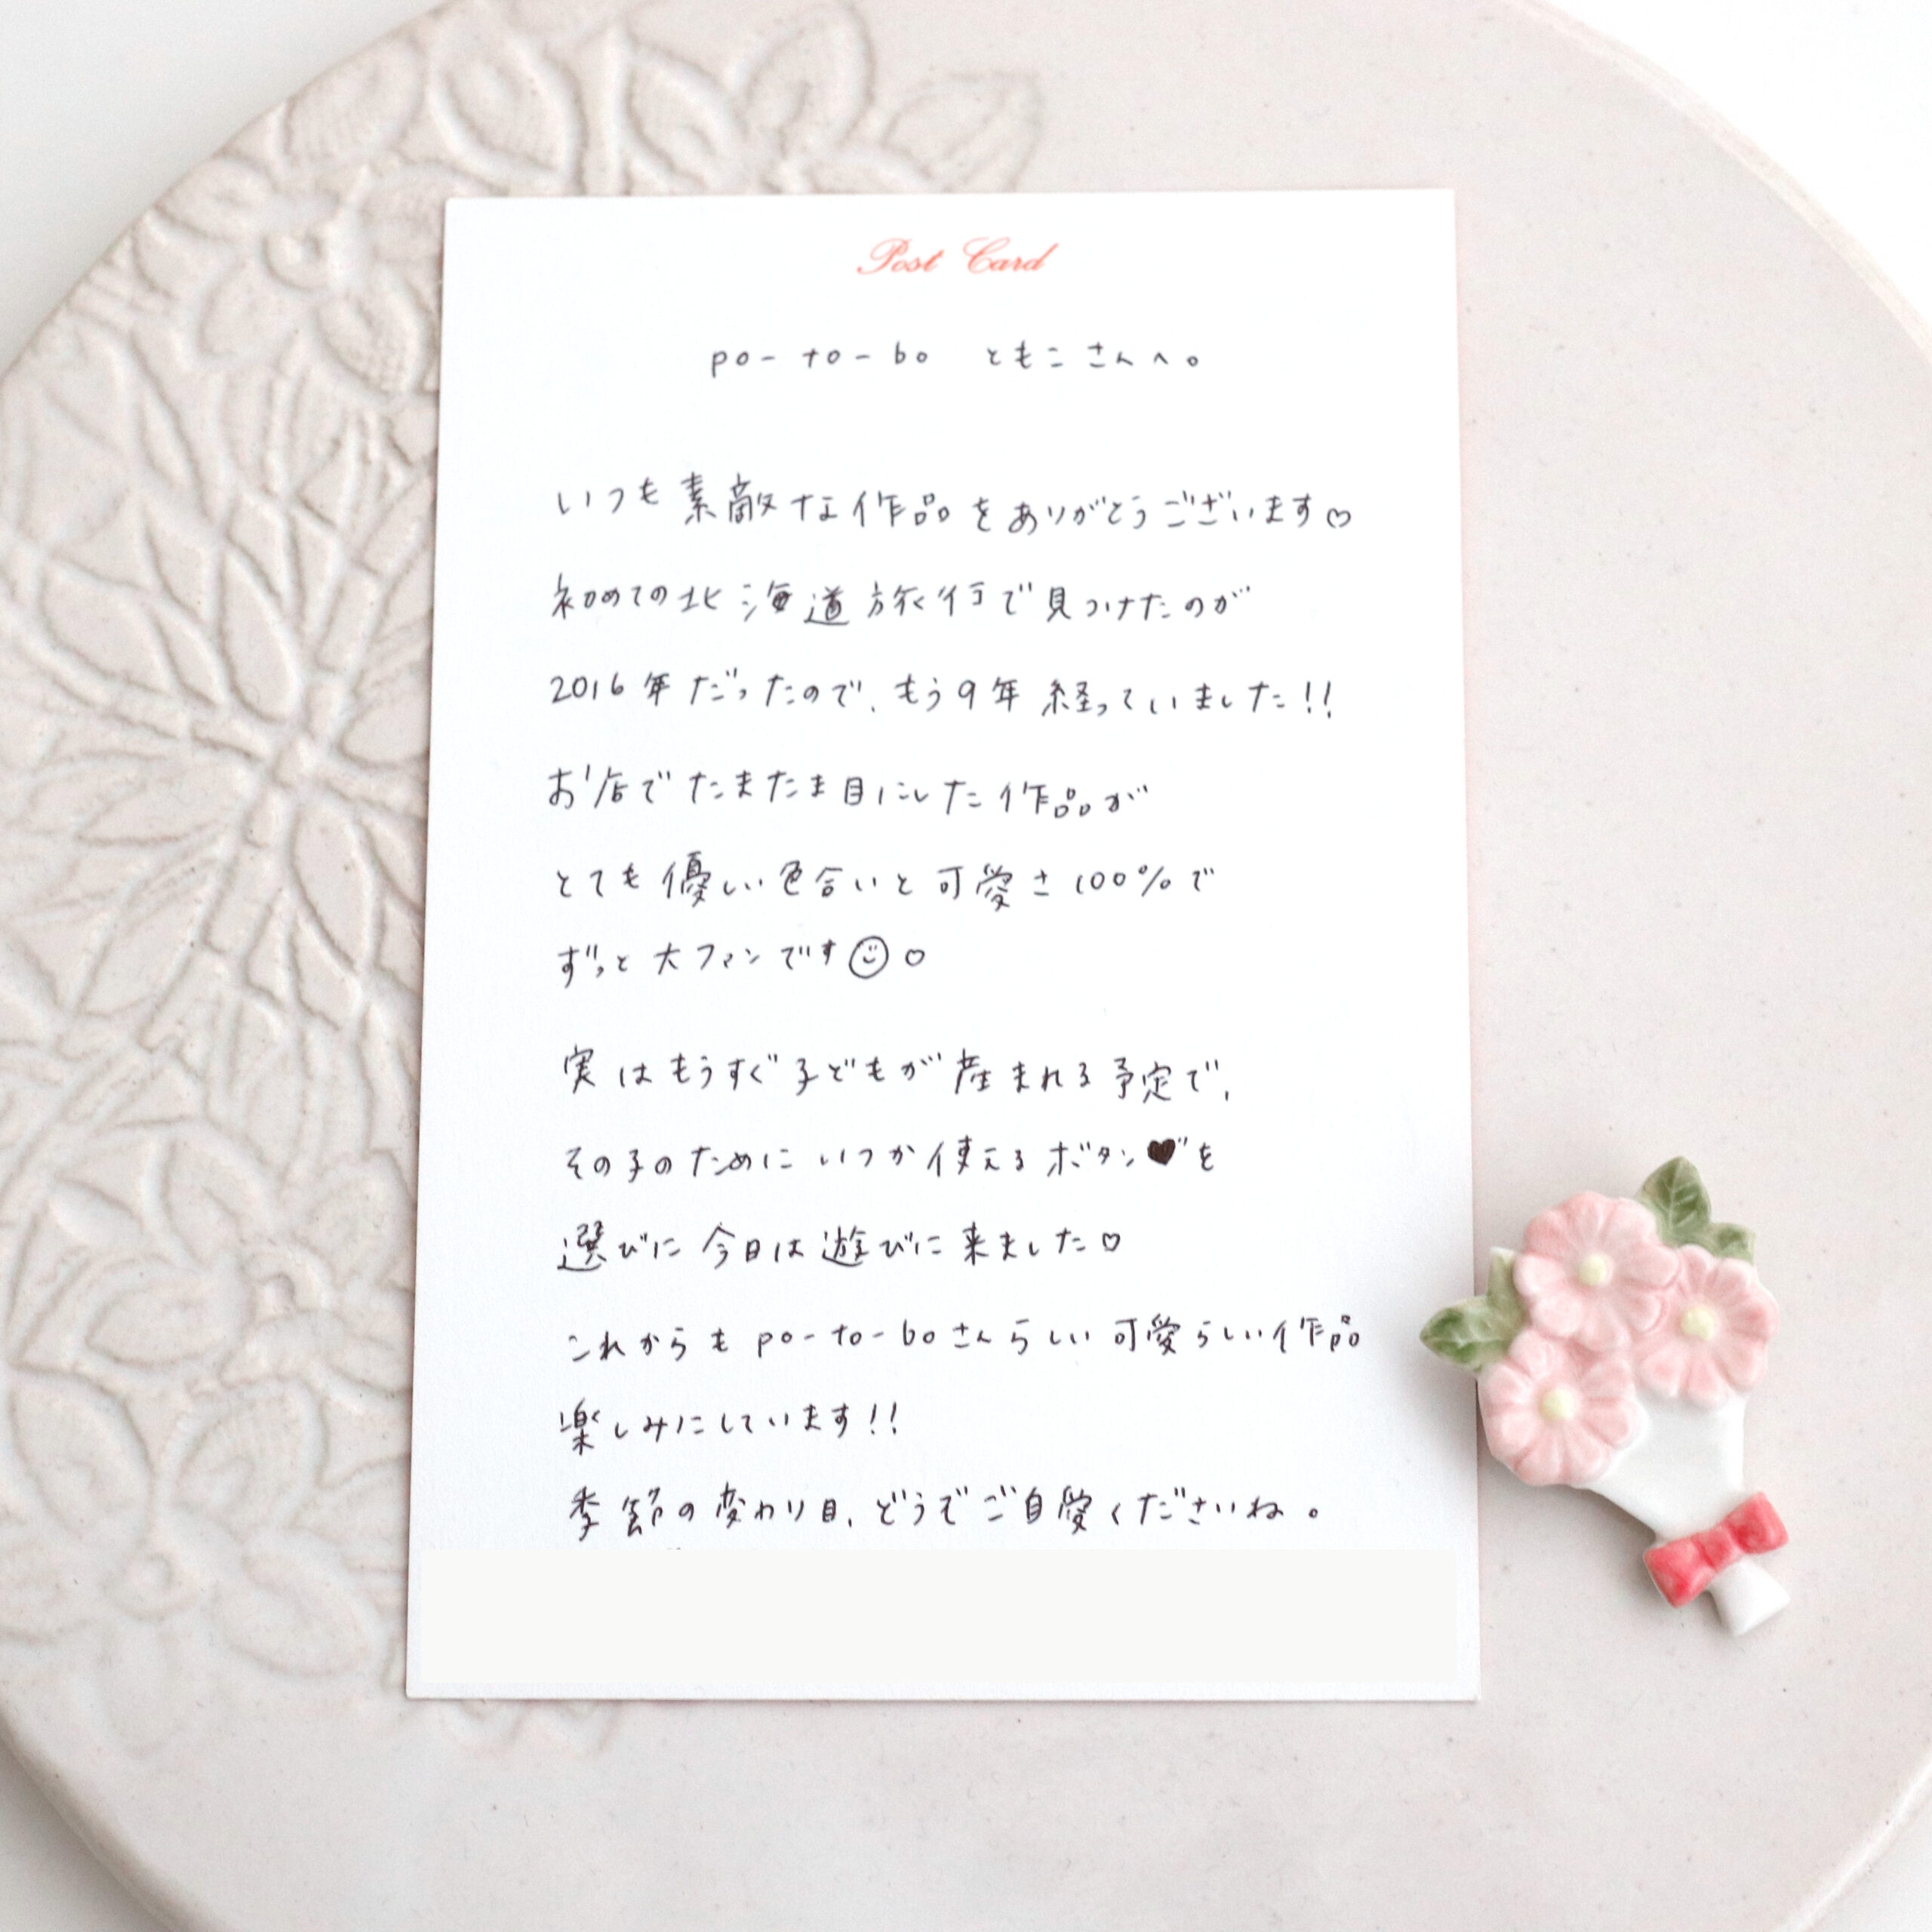 Post Card
po-to-bo ともこさんへ。
いつも素敵な作品をありがとうございます♡
初めての北海道旅行で見つけたのが
2016年だったので、もう9年経っていました!!
お店でたまたま目にした作品が
とても優しい色合いと可愛さ100%で
ずっと大ファンです☺♡
実はもうすぐ子どもが産まれる予定で、
その子のためにいつか使えるボタン♥を
選びに今日は遊びに来ました♡
これからもpo-to-boさんらしい可愛らしい作品
楽しみにしています!!
季節の変わり目、どうぞご自愛くださいね。